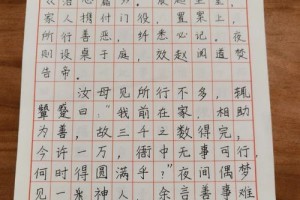 家人携付门役，置案上，
所行善恶，纤悉必记。夜
则设桌于庭，效赵阅道焚
告帝。
汝母见所行不多，辄
颦蹙曰：“我前在家，相助
为善，故三千之数得完，
今许一万，衙中无事可行，
何时得圆满乎？”夜间偶梦
见一神人，余言善事难